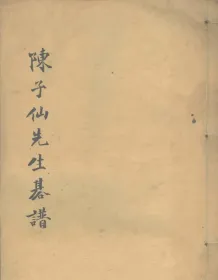 陳子仙先生碁譜